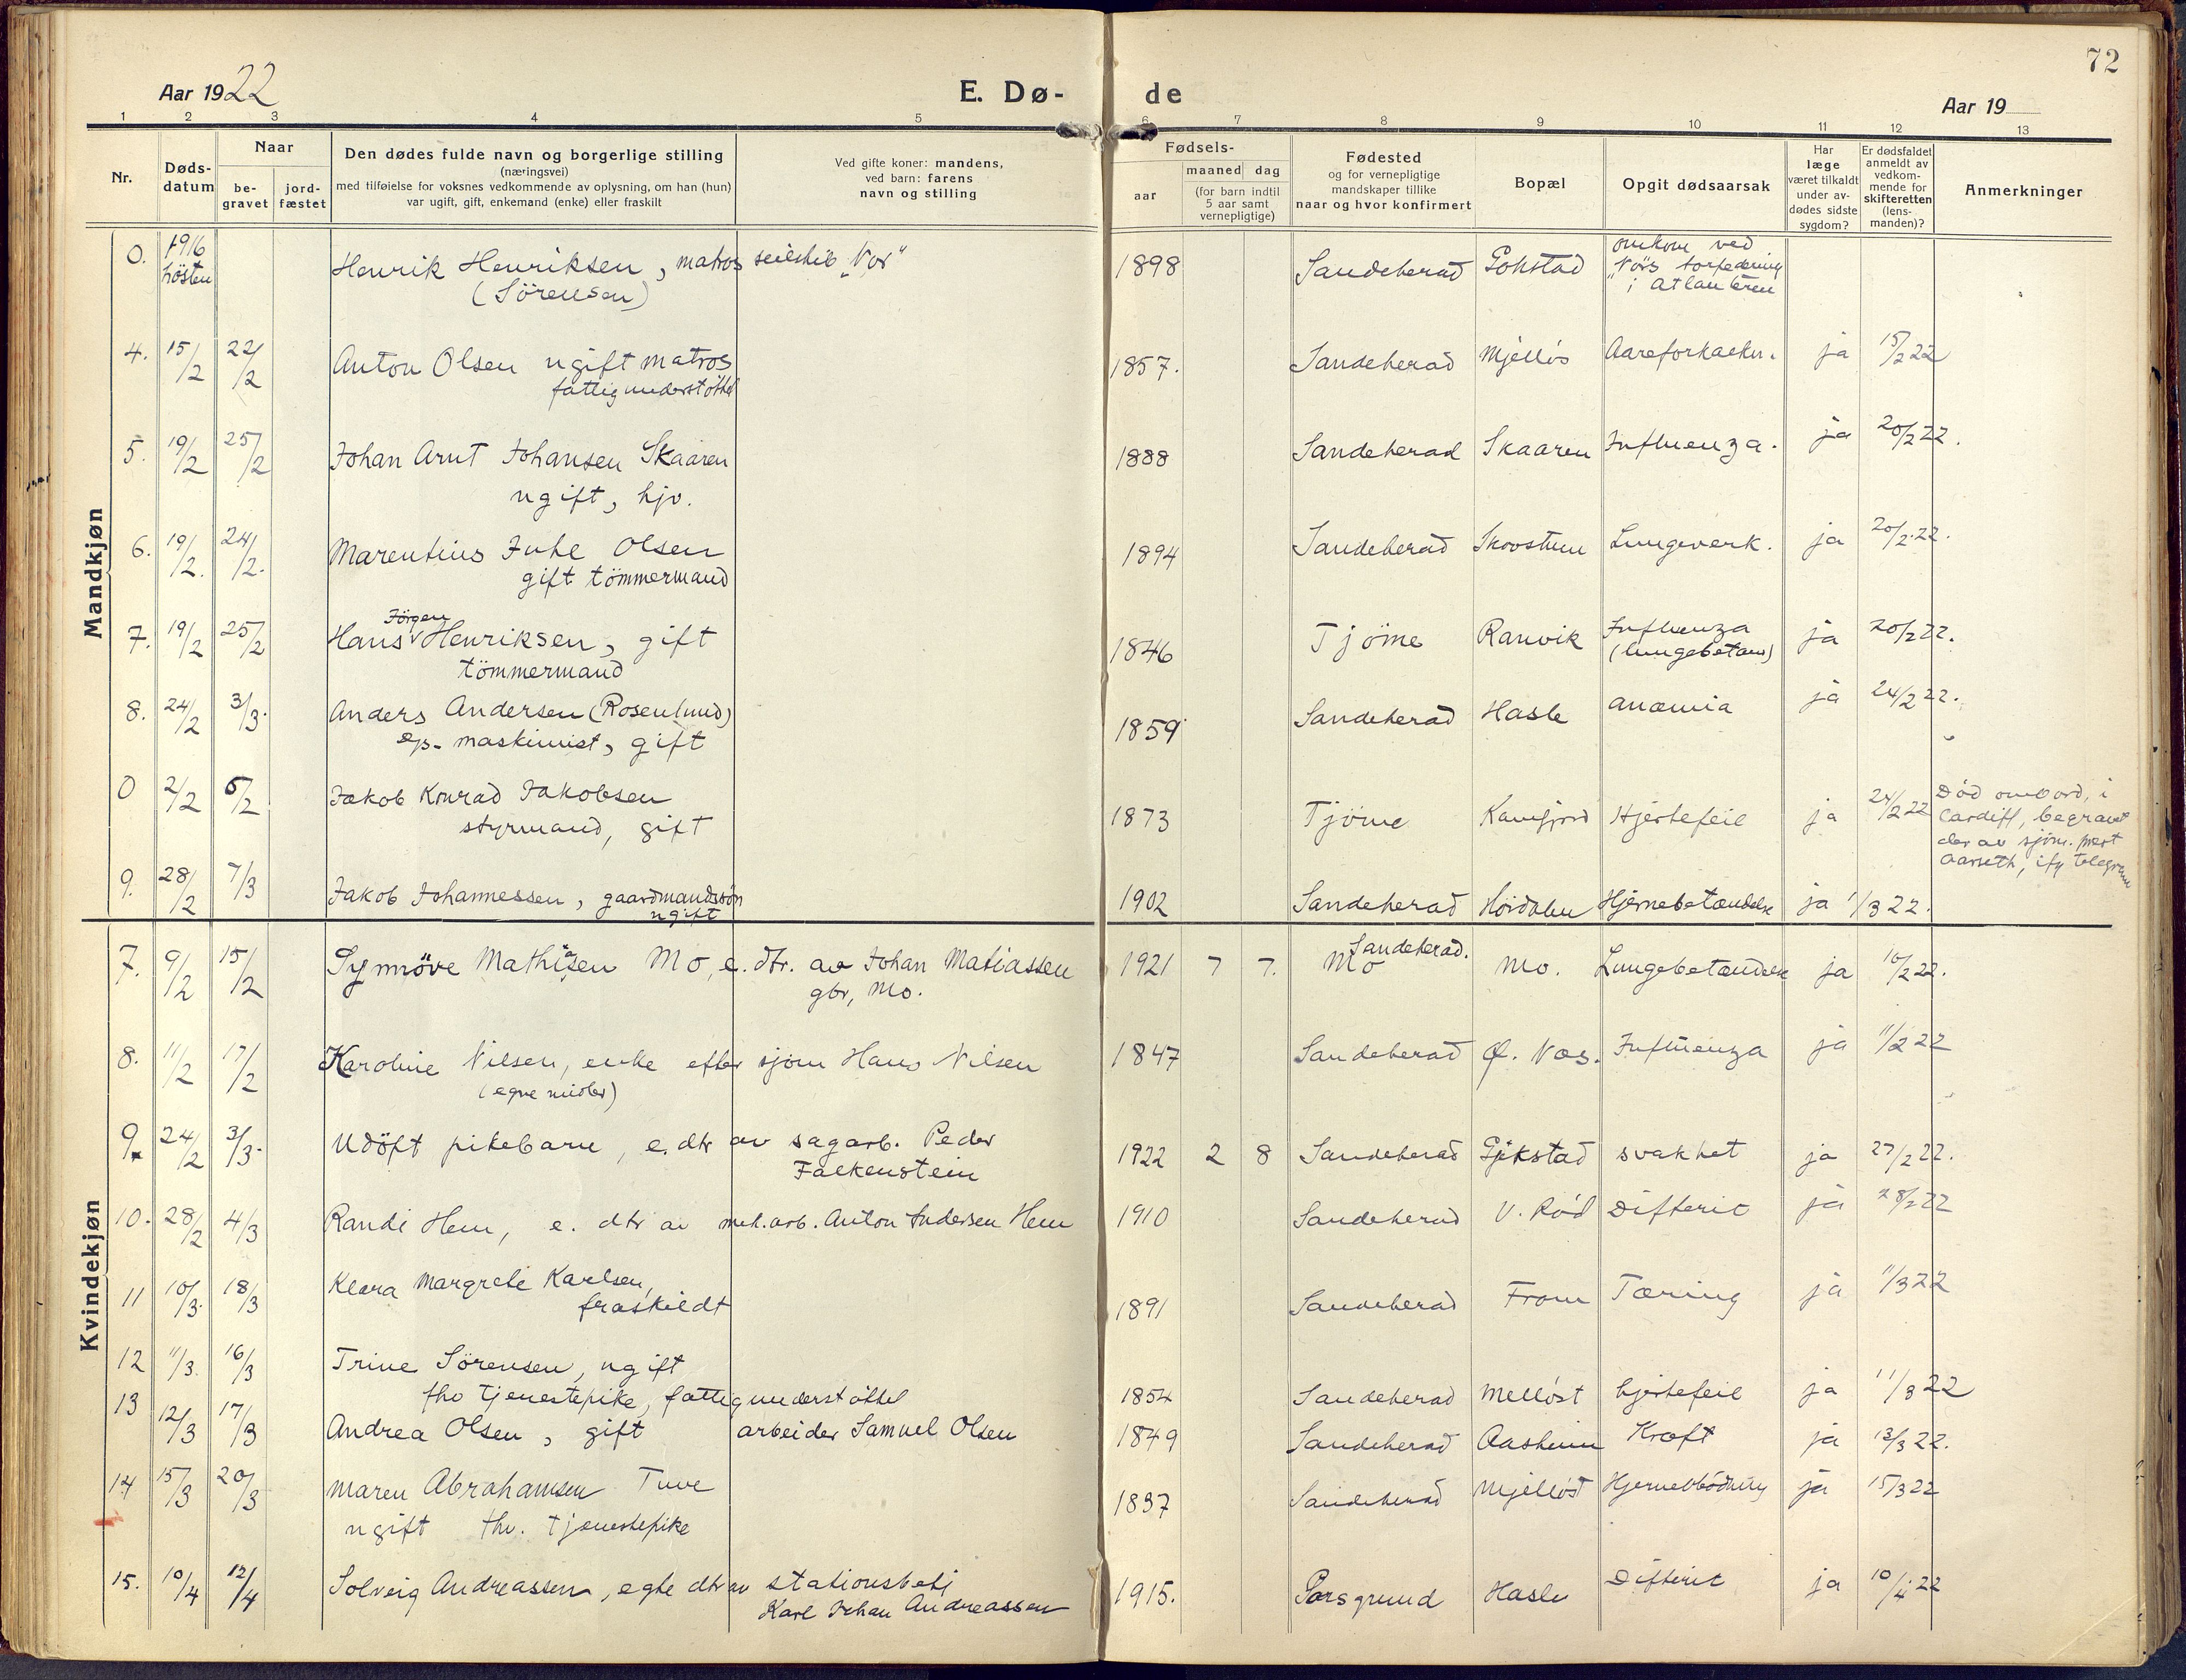 72
Aar 1922
E. Dø-
de
Aar 19
1 2 3 4 5 6 7 8 9 10 11 12 13
Nr.
Døds-
datum
Naar
be-
gravet
jord-
fæstet
Den dødes fulde navn og borgerlige stilling
(næringsvei)
med tilføielse for voksnes vedkommende av oplysning, om han (hun)
var ugift, gift, enkemand (enke) eller fraskilt
Ved gifte koner: mandens,
ved barn: farens
navn og stilling
Fødsels-
aar
maaned dag
(for barn indtil
5 aar samt
vernepligtige)
Fødested
og for vernepligtige
mandskaper tillike
naar og hvor konfirmert
Bopæl
Opgit dødsaarsak
Har
læge
været tilkaldt
under av-
dødes sidste
sygdom?
Er dødsfaldet
anmeldt av
vedkom-
mende for
skifteretten
(lens-
manden)?
Anmerkninger
Mandkjøn
0. 1916 Henrik Henriksen, matros seilskib "Vor" 1898 Sandeherad Gokstad omkom ved
hösten (Sörensen) "Vörs torpedering
i Atlanteren
4. 15/2 22/2 Anton Olsen ugift matros 1857. Sandeherad Mjelløs Aareforkalkn. ja 15/2 22
fattigunderstöttet
5. 19/2 25/2 Johan Arnt Johansen Skaaren 1888 Sandeherad Skaaren Influenza. ja 20/2 22.
ugift, hjv.
6. 19/2. 24/2. Marentius Juhl Olsen 1894 Sandeherad Skovstuen Lungeverk. ja 20/2.22.
gift tömmermand
Jörgen
7. 19/2 25/2 Hans Henriksen, gift 1846 Tjöme Ranvik Influenza ja 20/2 22.
tömmermand (lungebetæn)
8. 24/2 3/3. Anders Andersen (Rosenlund) 1859 Sandeherad Hasle anæmia ja 24/2 22.
maskinist, gift
0 2/2 5/2 Jakob Konrad Jakobsen 1873 Tjöme Kamfjord Hjertefeil ja 24/2 22 Död ombord, i
styrmand, gift Cardiff, begravet
der av sjöm. prest
Aarseth, ifg telegram
9. 28/2 7/3 Jakob Johannessen, gaardmandssön 1902 Sandeherad Höidalen Hjernebetændelse ja 1/3 22.
ugift
Kvindekjøn
7. 9/2 15/2 Synnöve Mathisen Mo, e. dtr. av Johan Matiassen 1921 7 7. Mo Sandeherad. Mo. Lungebetændelse ja 10/2 22.
gbr, Mo.
8. 11/2 17/2 Karoline Nilsen, enke efter sjöm Hans Nilsen 1847 Sandeherad Ø. Nes. Influenza ja 11/2 22
(egne midler)
9. 24/2 3/3. Udöpt pikebarn, e. dtr av sagarb. Peder 1922 2 8 Sandeherad Gjekstad svakhet ja 27/2 22.
Falkenstein
10. 28/2 4/3 Randi Hem, e. dtr av mek.arb. Anton Andersen Hem 1910 Sandeherad V. Röd Difterit ja 28/2 22
11 10/3. 18/3 Klara Margrete Karlsen, 1891 Sandeherad Fram Tæring ja 11/3 22
fraskildt
12 11/3. 16/3 Trine Sörensen, ugift 1854 Sandeherad Melløst hjertefeil ja 11/3 22
fhv tjenestepike, fattigunderstöttet
13 12/3 17/3 Andrea Olsen, gift arbeider Samuel Olsen 1849 Sandeherad Aasheim Kræft ja 13/3 22.
14 15/3 20/3 Maren Abrahamsen Tuve 1837 Sandeherad Mjelløst Hjerneblödning ja 15/3 22
ugift fhv. tjenestepike
15. 10/4 12/4 Solveig Andreassen, egte dtr av stationsbetj 1915. Porsgrund Hasle Difterit ja 10/4 22
Karl Johan Andreassen